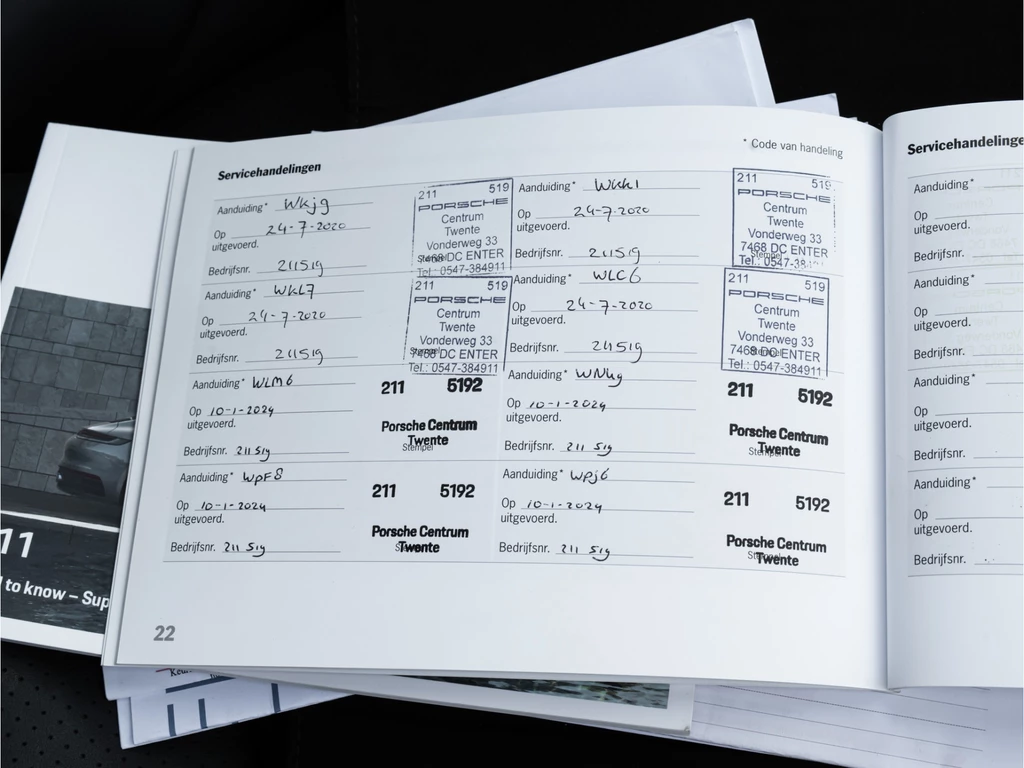 Servicehandelingen
* Code van handeling
Aanduiding* WKj9
Op 24-7-2020
uitgevoerd.
Bedrijfsnr. 211519
211 519
PORSCHE
Centrum
Twente
Vonderweg 33
7468 DC ENTER
Stempel
Tel.: 0547-384911
Aanduiding* WKK1
Op 24-7-2020
uitgevoerd.
Bedrijfsnr. 211519
211 519
PORSCHE
Centrum
Twente
Vonderweg 33
7468 DC ENTER
Stempel
Tel.: 0547-384911
Aanduiding* WKL7
Op 24-7-2020
uitgevoerd.
Bedrijfsnr. 211519
211 519
PORSCHE
Centrum
Twente
Vonderweg 33
7468 DC ENTER
Stempel
Tel.: 0547-384911
Aanduiding* WLC6
Op 24-7-2020
uitgevoerd.
Bedrijfsnr. 211519
211 519
PORSCHE
Centrum
Twente
Vonderweg 33
7468 DC ENTER
Stempel
Tel.: 0547-384911
Aanduiding* WLM6
Op 10-1-2024
uitgevoerd.
Bedrijfsnr. 211 519
211 5192
Porsche Centrum
Twente
Stempel
Aanduiding* WNK9
Op 10-1-2024
uitgevoerd.
Bedrijfsnr. 211 519
211 5192
Porsche Centrum
Twente
Stempel
Aanduiding* WPF8
Op 10-1-2024
uitgevoerd.
Bedrijfsnr. 211 519
211 5192
Porsche Centrum
Twente
Aanduiding* WPj6
Op 10-1-2024
uitgevoerd.
Bedrijfsnr. 211 519
211 5192
Porsche Centrum
Twente
22
Servicehandelinge
Aanduiding*
Op
uitgevoerd.
Bedrijfsnr.
Aanduiding*
Op
uitgevoerd.
Bedrijfsnr.
Aanduiding*
Op
uitgevoerd.
Bedrijfsnr.
Aanduiding*
Op
uitgevoerd.
Bedrijfsnr.
11
to know – Sup